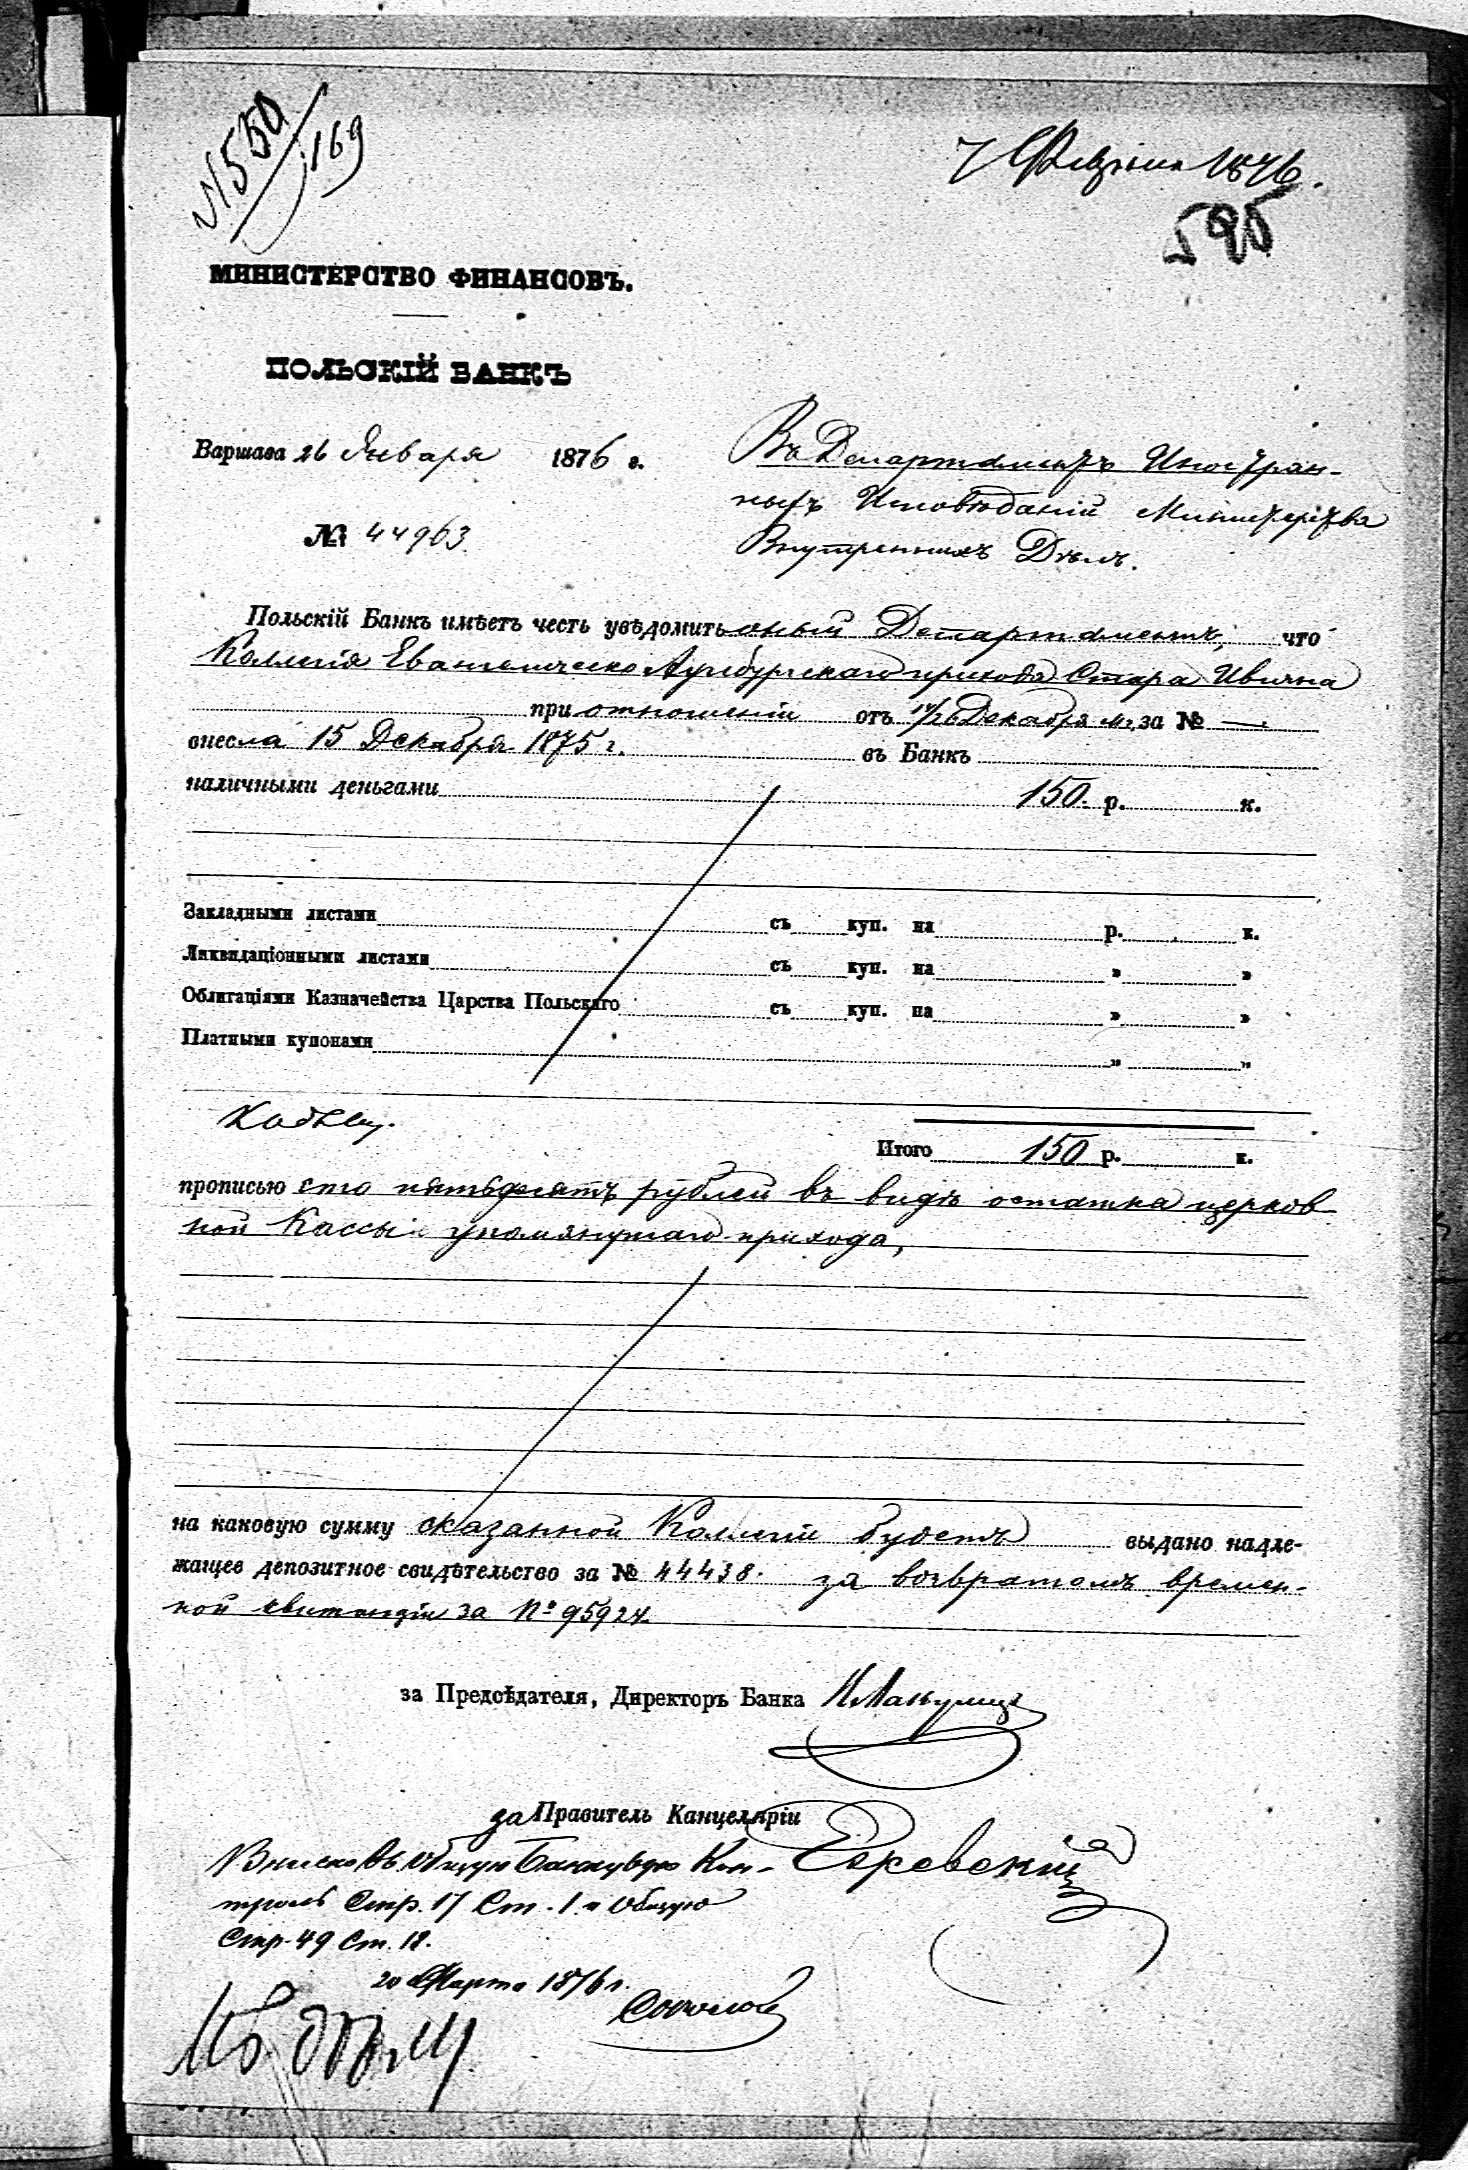 № 550
169
7 Февраля 1876.
595
МИНИСТЕРСТВО ФИНАНСОВЪ.
ПОЛЬСКІЙ БАНКЪ
Варшава 26 Января 1876 г.
№ 44963
Въ Департаментъ Иностран-
ныхъ Исповѣданій Министерства
Внутреннихъ Дѣлъ.
Польскій Банкъ имѣетъ честь увѣдомить оный Департаментъ, что
Коллегія Евангелическо Аугсбургскаго прихода Стара Ивична
при отношеніи отъ 14/26 Декабря м.г. за № —
внесла 15 Декабря 1875 г. въ Банкъ
наличными деньгами 150. р. к.
Закладными листами съ куп. на р. к.
Ликвидаціонными листами съ куп. на " "
Облигаціями Казначейства Царства Польскаго съ куп. на " "
Платными купонами " "
Итого 150 р. к.
прописью сто пятьдесятъ рублей въ видѣ остатка церков
ной Кассы упомянутаго прихода,
на каковую сумму сказанной Коллегіи будетъ выдано надле-
жащее депозитное свидѣтельство за № 44438. за возвратомъ времен-
ной квитанціи за № 95924.
за Предсѣдателя, Директоръ Банка
за Правитель Канцеляріи
Внесено въ общую Банковую Кон-
троль Стр. 17 Ст. 1. и общую
Стр. 49 Ст. 18.
20 Марта 1876 г.
Соколов